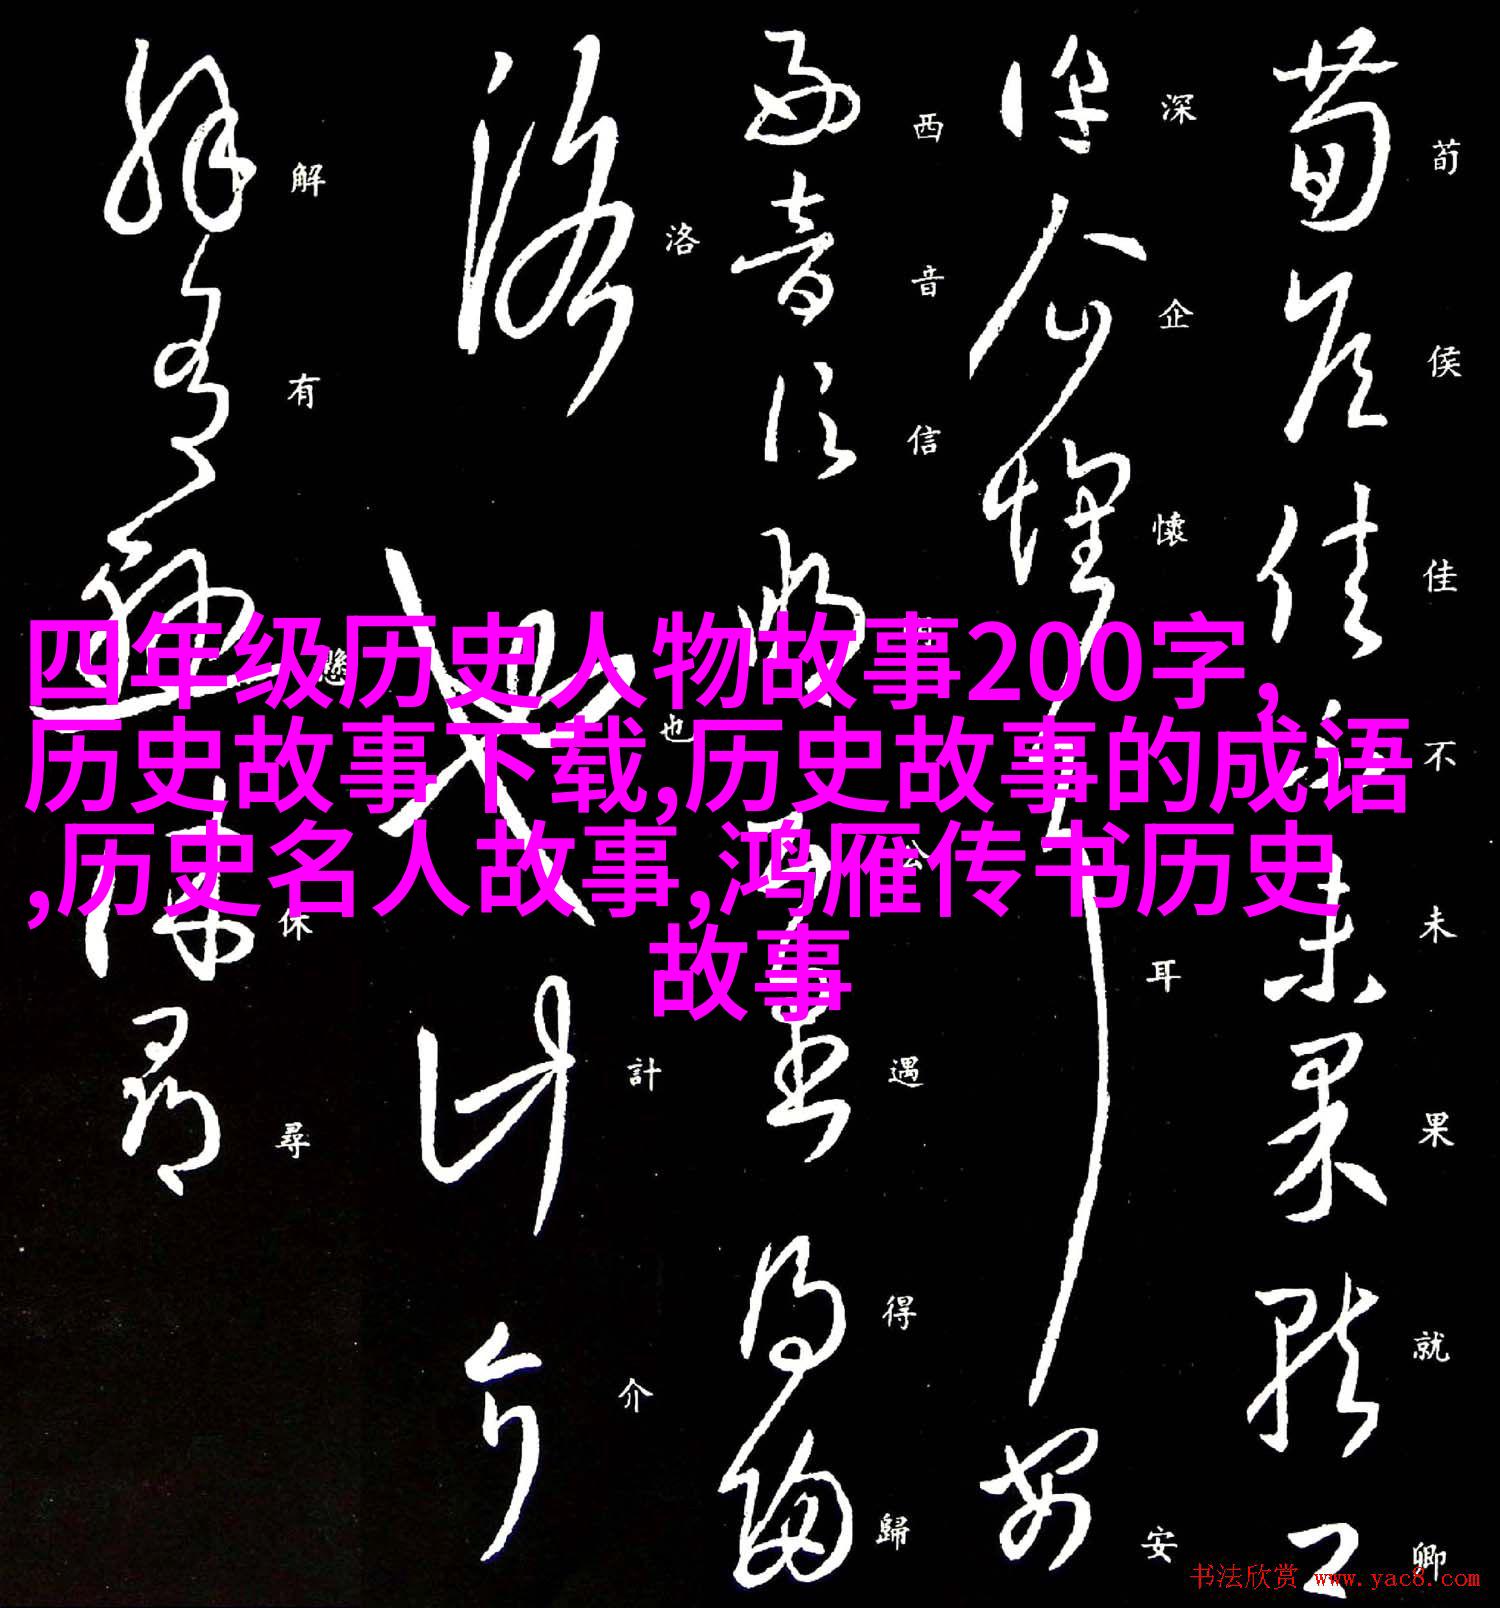 四年级历史人物故事200字,
历史故事下载,历史故事的成语
,历史名人故事,鸿雁传书历史
故事
荀侯佳不未果就卿
深企懷耳安
西音信
遇得歸
洛也計介
解有懸保尋
书法欣赏 www.yac8.com